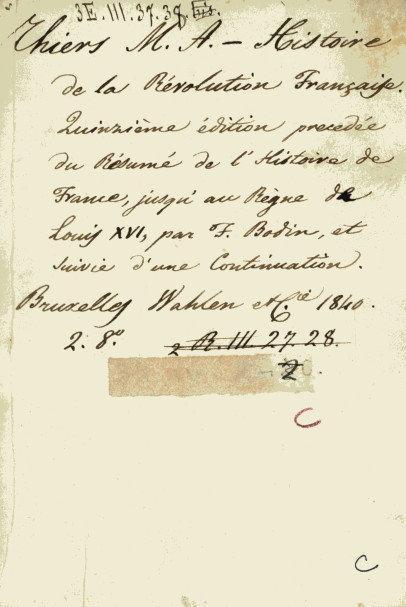 3E.III.37.38.
Thiers M. A. – Histoire
de la Révolution Française.
Quinzième édition precedée
du Résumé de l'Histoire de
France, jusqu'au Règne de
Louis XVI, par F. Bodin, et
suivie d'une Continuation.
Bruxelles Wahlen & C.ie 1840.
2. 8.o 2 R.III 27.28.
2
C
C